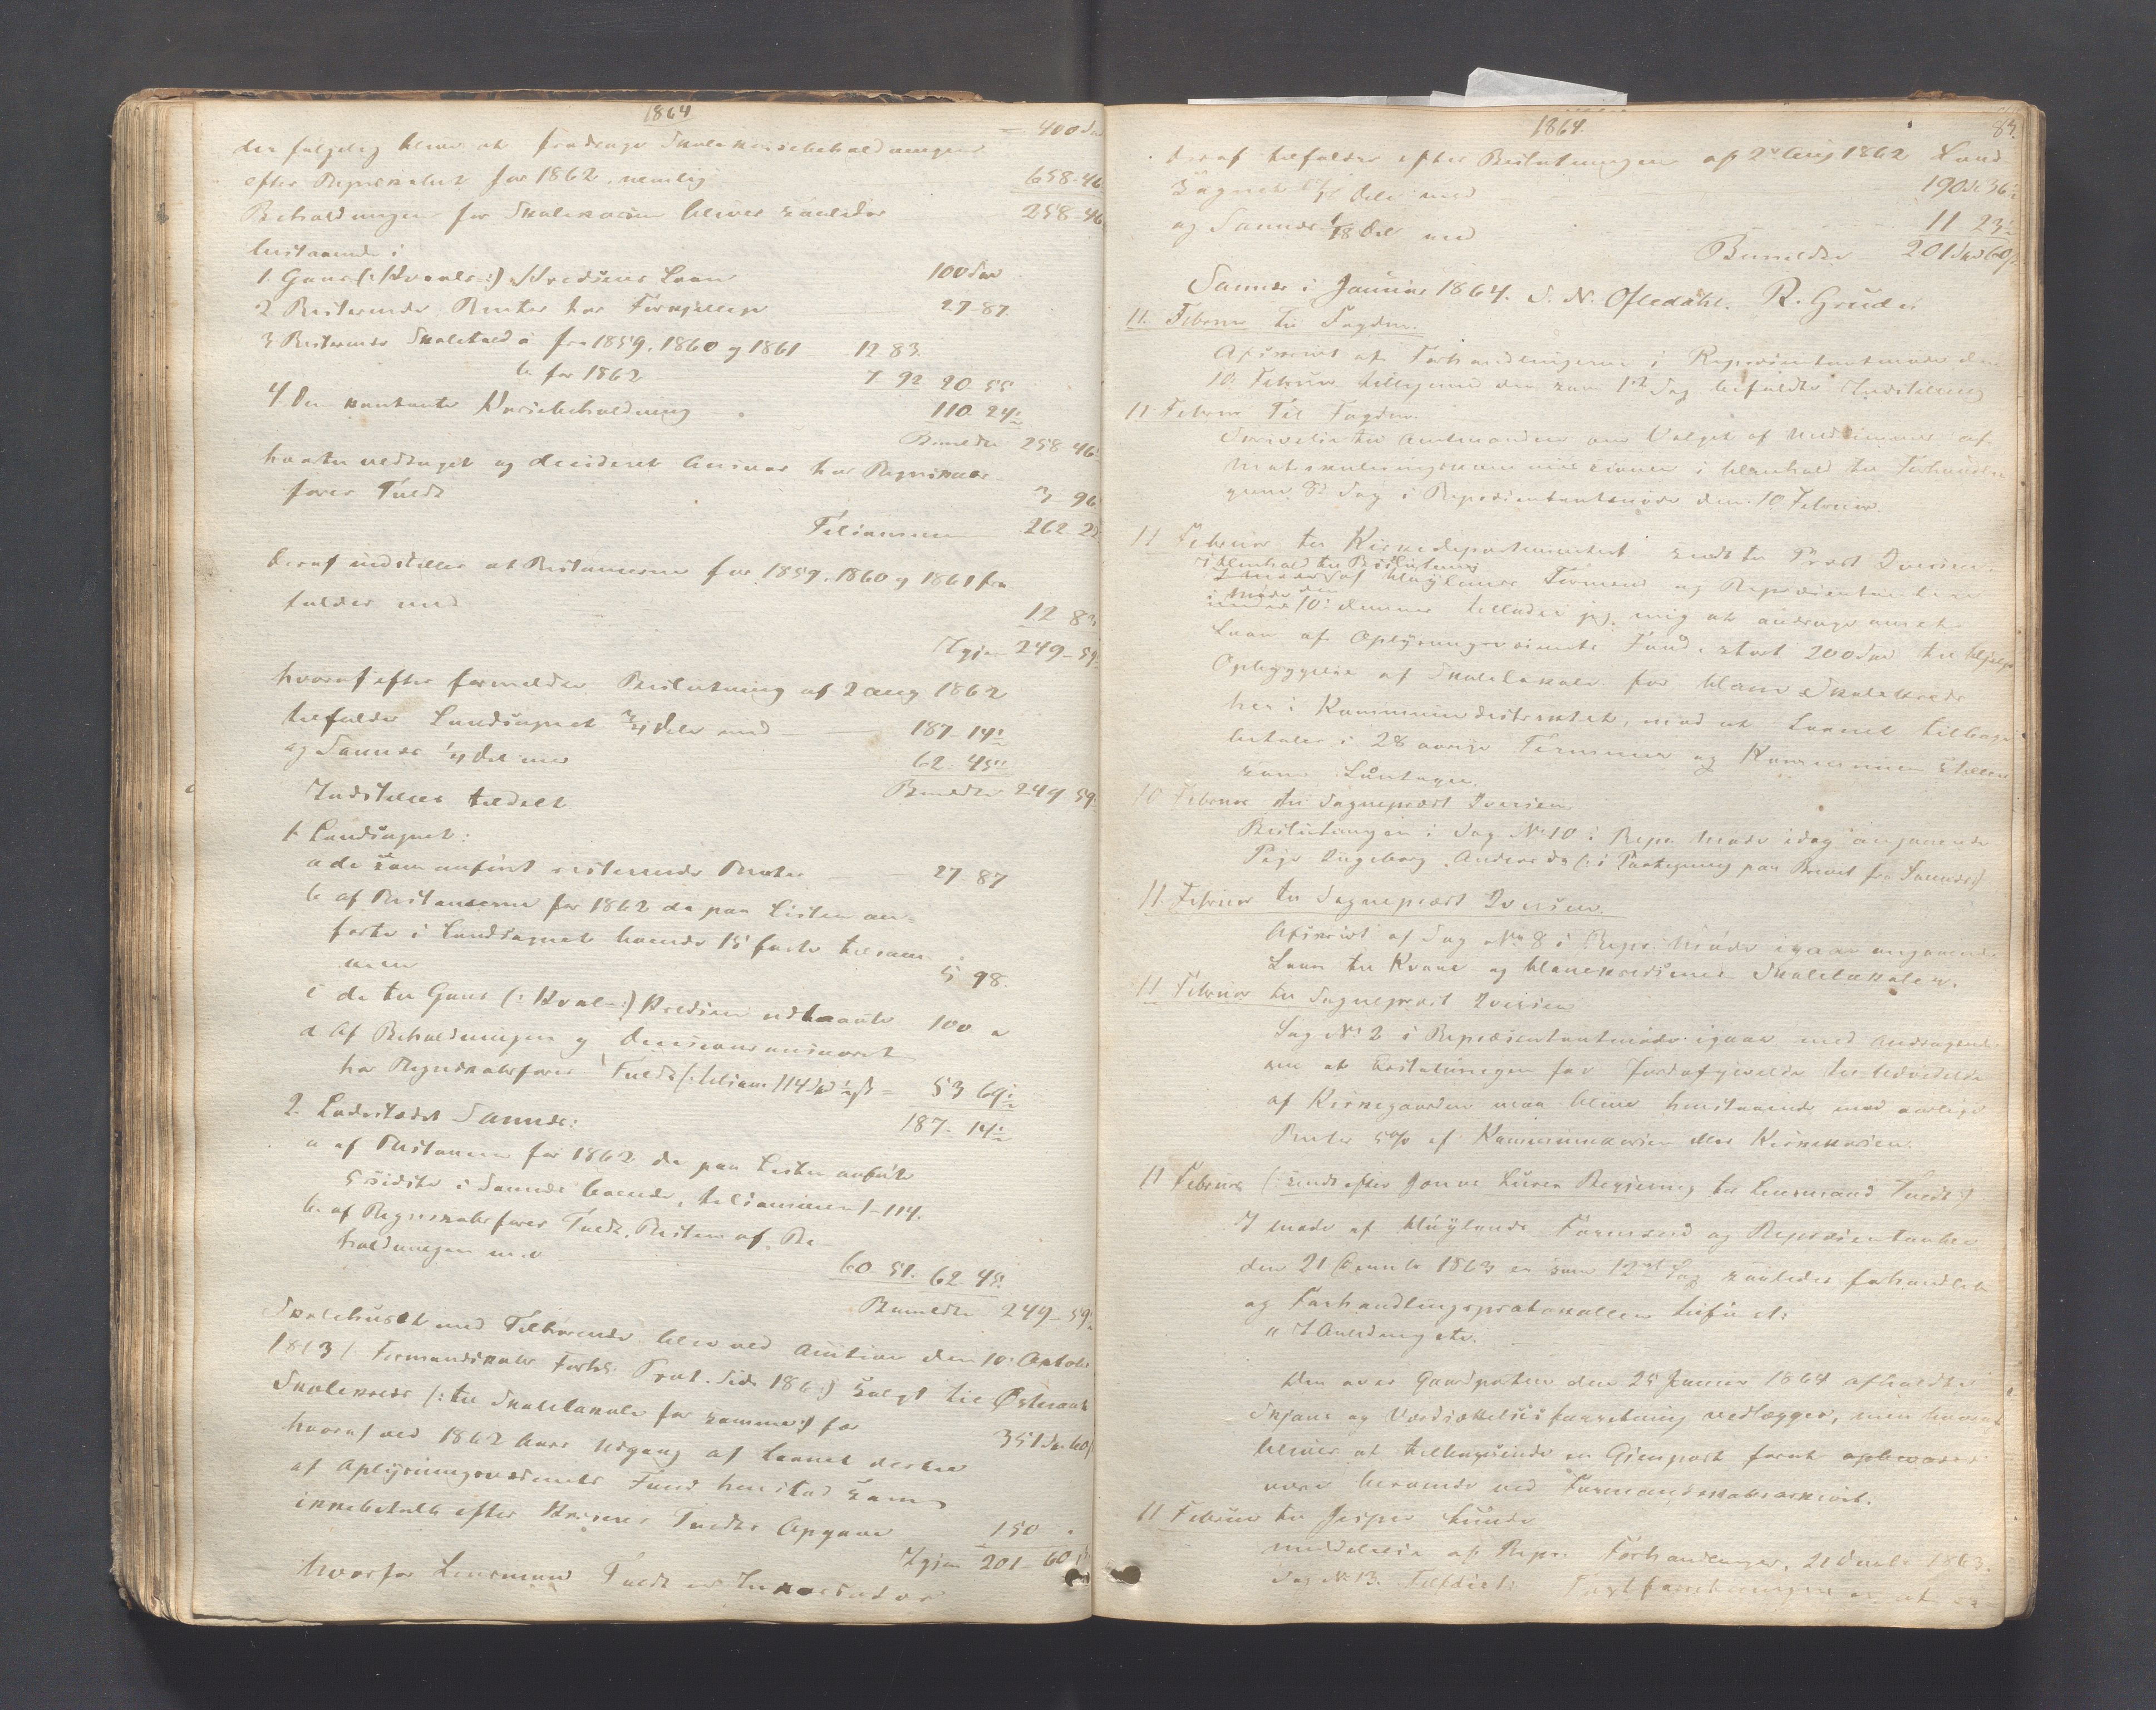 1864
der følgelig bliver at fradrage Skolekassebeholdningens 400 Spd
efter Regnskabet for 1862, nemlig 658-46
Beholdningen for Skolekassen bliver saaledes 258-46
bestaaende i
1. Gans (: Kvals :) Kredsens Laan 100 Spd
2 Resterende Renter hos Forskjellige 27-87.
3 Resterende Skoleskat a fra 1859, 1860 og 1861 12 83.
b for 1862 7 92 20 55
4 Den kontante Kassebeholdning 110 24½
Bemeldte 258 46½
hvortil vedtaget og decideret Ansvar hos Regnskabs-
fører Tvedt 3 96
Tilsammen 262-2
Heraf indstilles at Restancerne for 1859, 1860 og 1861 fra
falder med 12 83
Igjen 249-59½
hvoraf efter formeldte Beslutning af 2 Aug 1862
tilfalder Landsognet ¾ Dele med 187-14½
og Sannes ¼ Del med 62 45
Bemeldte 249 59½
Indstilles tildelt
1. Landsognet:
a de som anført resterende Renter 27-87
b af Restancerne for 1862 de paa Listen an-
førte i Landsognet boende 15 første tilsam-
men 5 98.
c de til Gans (: Kval- :) Kredsen udlaante 100 "
d Af Beholdningen og Decisionsansvaret
hos Regnskabsfører Tvedt (: tilsam 114 Spd ½ ß = 53 69½
187-14½
2. Ladestedet Sannes:
a af Restancen for 1862 de paa Listen anførte
5 sidste i Sannes boende, tilsammen 1-114.
b. af Regnskabsfører Tvedt, Resten af Be-
holdningen m.v 60 51. 62 45
Bemeldte 249-59½
Skolehuset med Tilhørende blev ved Auction den 10: Octobr
1863 (: Formandskabs Forhs. Prot. Side 186 :) solgt til Østeraat
Skolekreds (: til Skolelokale for samme :) for 351 Spd 60
hvoraf ved 1862 Aars Udgang af Laanet dertil
af Oplysningsvæsenets Fond henstod som
ikkebetalt efter Kasserer Tvedts Opgave 150 "
Igjen 201-60
hvorfor Lensmand Tvedt er Inkassator

1864. 84.
Heraf tilfalder efter Beslutningen af 2 Aug 1862 Land-
Sognet 17/18 Dele med 190 Spd 36½
og Sannes 1/18 Del med 11 23½
Bemeldte 201 Spd 60
Sannes i Januar 1864. S. N. Ofledahl. R. Gruder
11. Februar til Fogden.
Afskrivt af Forhandlingerne i Repræsentantmøde den
10: Februar tilligemed den som 1ste Sag befalede Indstilling
11 Februar Til Fogden.
Skrivelse til Amtmanden om Valget af Medlemmer af
Matrikuleringskommissionen i Henhold til Forhandlin
gerne, 8de Sag i Repræsentantmøde den 10 Februar.
11 Februar til Kirkedepartementet sendt til Prost Iversen.
I Henhold til Beslutning
af Høylands Formænd og Repræsentantere
i Møde den
10: dennes tillader jeg mig at andrage om et
Laan af Oplysningsvæsenets Fond, stort 200 Spd til Hjelp
Opbyggelse af Skolelokale for Hana Skolekreds
her i Kommunedistriktet, mod at Laanet tilbage
betales i 28 aarige Terminer og Kommunen stilles
som Låntager.
10 Februar til Sogneprest Iversen
Beslutningen i Sag No 10 i Repr. Møde idag angaaende
Pige Ingeborg Andersdr (: i Paategning paa Brevet fra Sannes :)
11. Februar til Sogneprest Iversen.
Afskrivt af Sag No 8 i Repr. Møde igaar angaaende
Laan til Kvals- og Hanekredsenes Skolelokaler.
11 Februar til Sogneprest Iversen
Sag No 2 i Repræsentantmøde igaar med Andragende
om at Erstatningen for Jordafgivelse til Udvidelse
af Kirkegaarden maa blive henstaaende mod aarlige
Renter 5% af Kommunekassen eller Kirkekassen.
11 Februar (: sendt efter Jonas Lura Begjering til Lensmand Tvedt :)
I Møde af Høylands Formænd og Repræsentanter
den 21 Decembr 1863 er som 12te Sag saaledes forhandlet
og Forhandlingsprotokollen tilført:
" I Anledning etc.
Den over Gaardparten den 25 Januar 1864 afholdte
Skjøns og Værdsættelsesforretning vedlægges, men hvoraf
bliver at tilbagesende en Gjenpart forat opbevares
være beroende ved Formandskabsarkivet.
11 Februar til Jesper Lunde
Meddelelse af Repr. Forhandlinger, 21 Decbr 1863.
Sag No 13. Tilføiet: